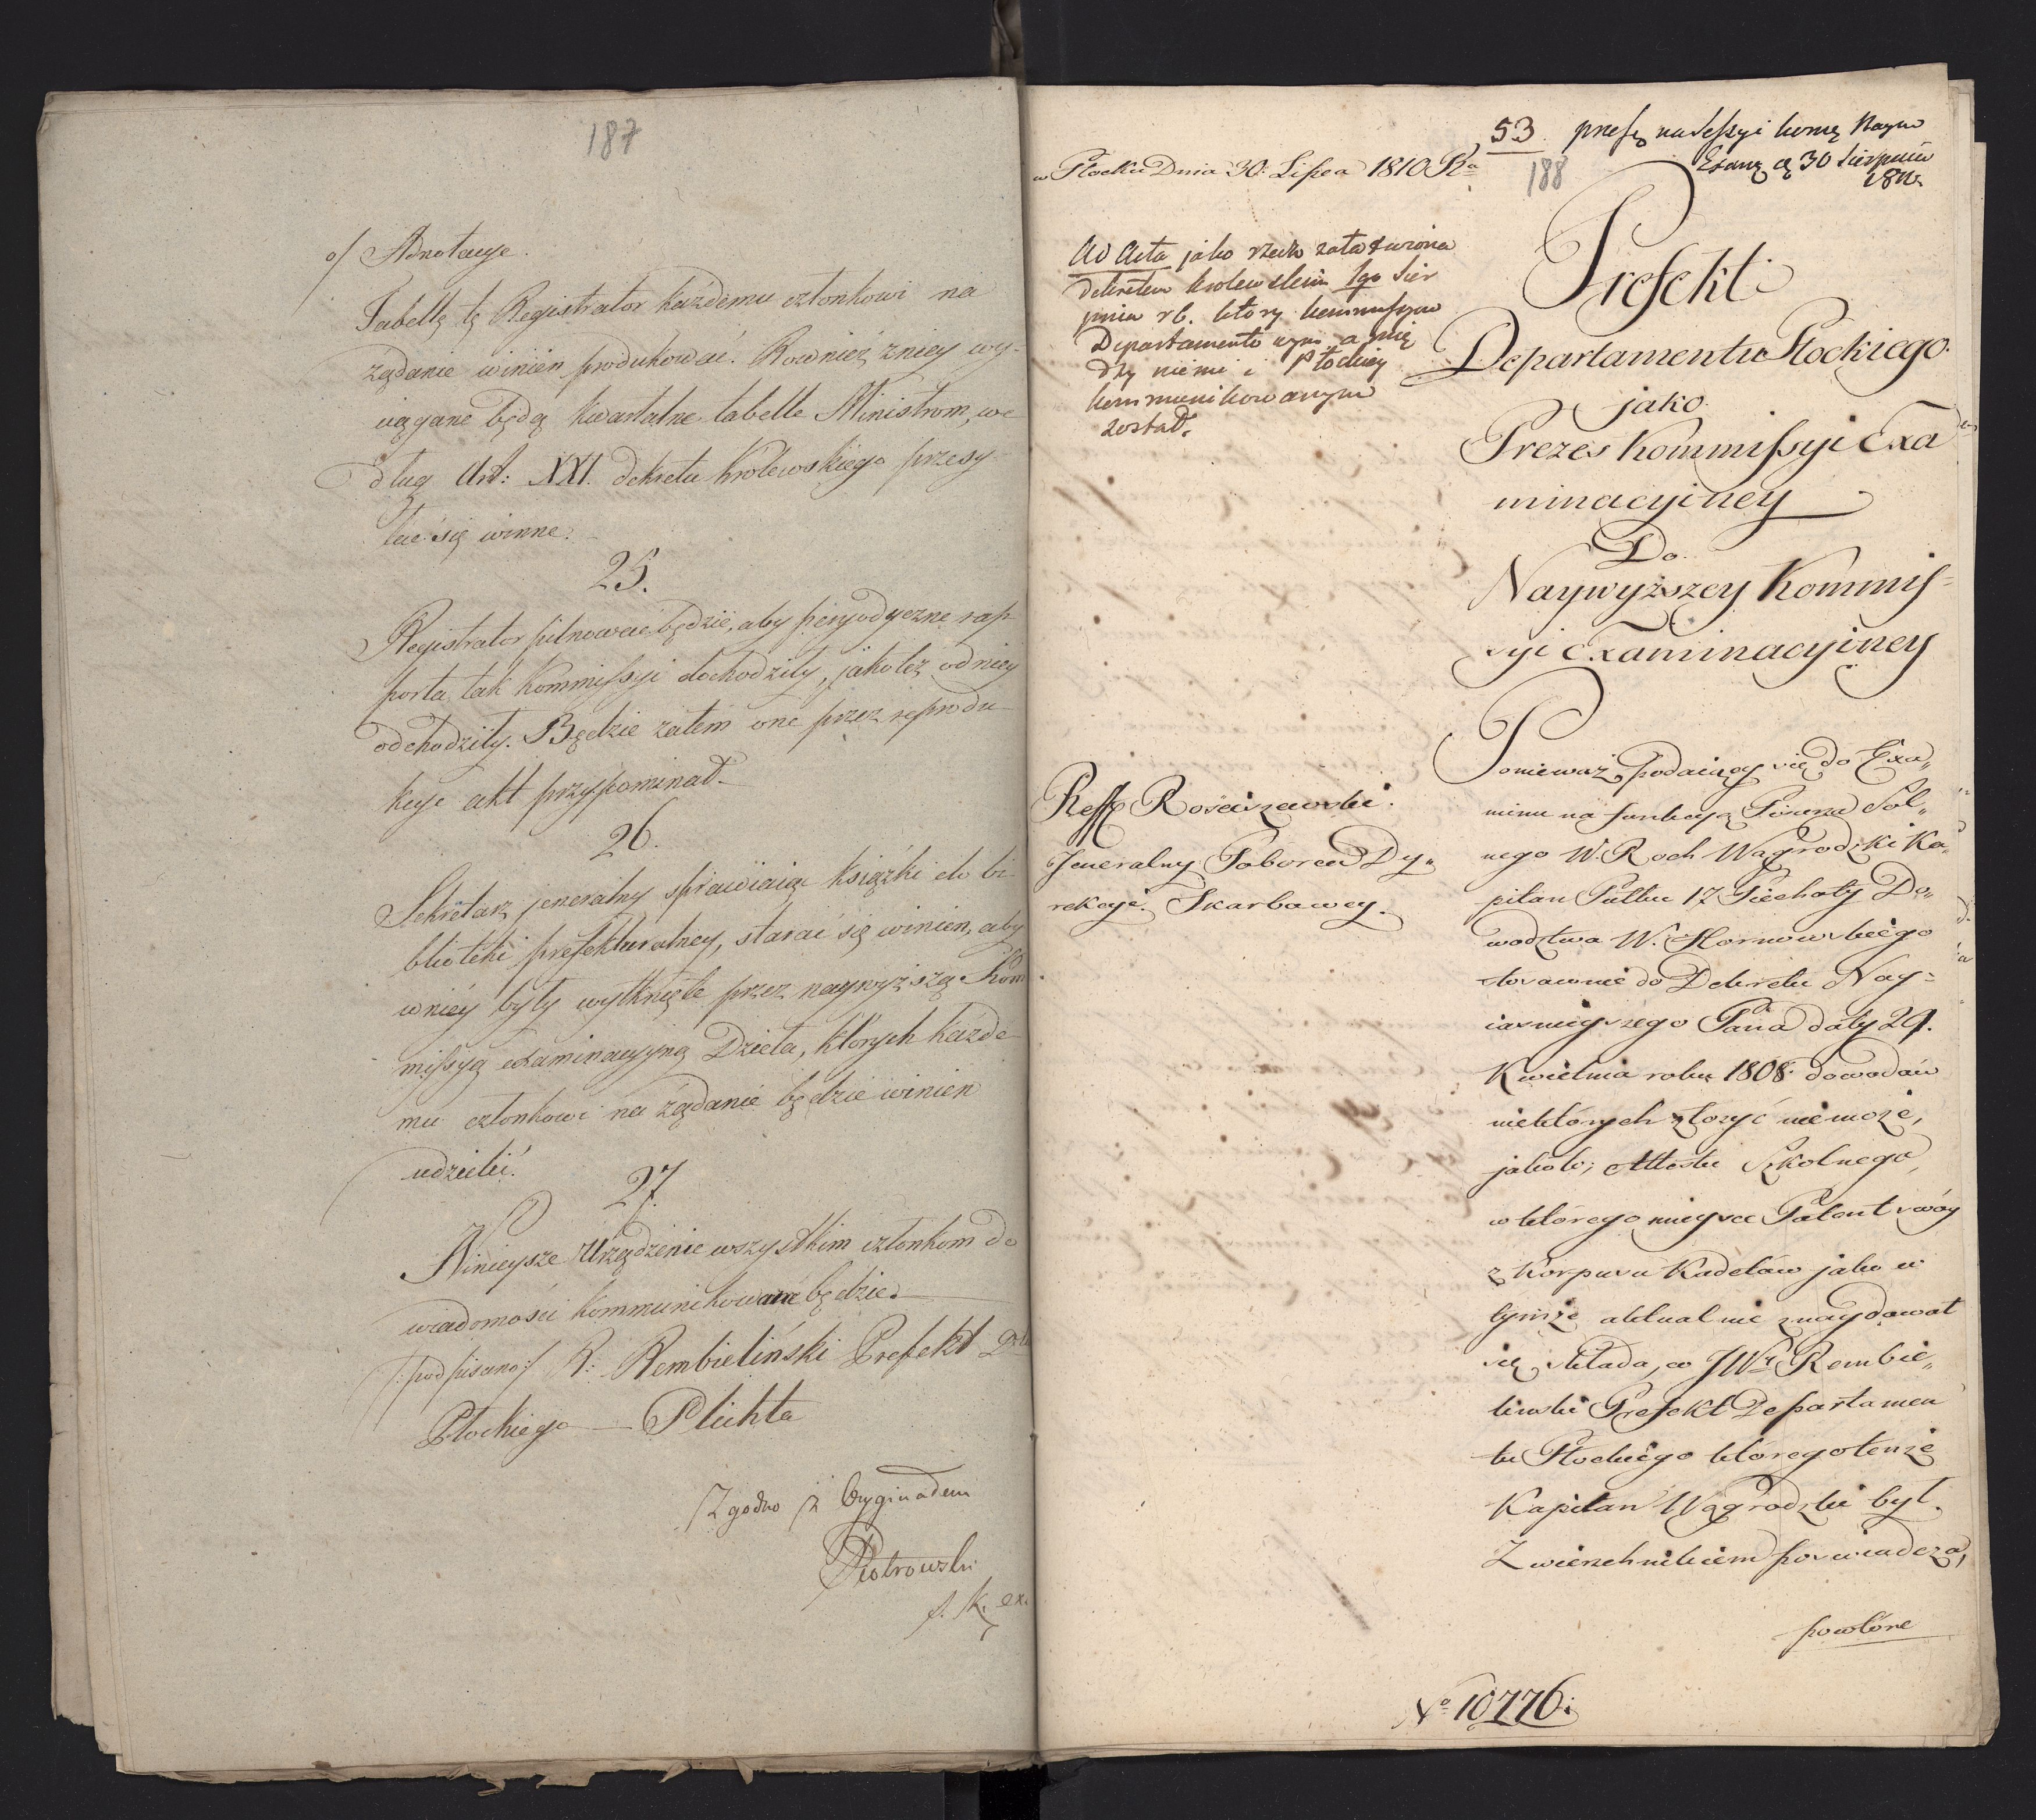 187
o/ Adnotacye.
Tabellę tę Registrator każdemu członkowi na
żądanie winien produkować. Rownież zniey wy-
ciągane będą kwartalne tabelle Ministrom, we
dług Art: XXI. dekretu Królewskiego przesy-
łać się winne.
25.
Registrator pilnować będzie, aby peryodyczne rap
porta tak Kommissyi dochodziły, jako też od niey
odchodziły. Będzie zatem one przez reprodu
kcye akt przypominał.
26.
Sekretarz jeneralny sprawiaiąc książki do bi-
blioteki prefekturalney, starać się winien, aby
w niéy były wytknięte przez naywyższą Kom
missyą examinacyjną Dzieła, których każde
mu członkowi na żądanie będzie winien
udzielić.
27.
Ninieysze Urządzenie wszystkim członkom do
wiadomości kommunikowane będzie.
/:podpisano:/ R: Rembieliński Prefekt Dptu
Płockiego — Plichta
Zgodno z Oryginałem
Piotrowski
s. K. ex.
53
188
w Płocku Dnia 30. Lipca 1810 Rn
30 Sierpnia
1810
Ad Acta jako rzecz załatwiona
dekretem krolewskim 1go Sier
pnia rb. który kommissyom
Departamento wym a mię
dzy niemi i Płockiey
kommunikowanym
został.
Prefekt
Departamentu Płockiego.
jako
Prezes Kommissyi Exa
minacyiney
Do
Naywyższey Kommis=
syi Examinacyiney
Reff Rościszewski.
Jeneralny Poborca Dy„
rekcyi Skarbowey.
Ponieważ Podaiący się do Exa„
minu na funkcyą Pisarza Sol„
nego W. Roch Wągrodzki Ka„
pitan Pułku 17 Piechoty Do„
wodztwa W. Hornowskiego
stosownie do Dekretu Nay=
iasnieyszego Pana daty 29.
Kwietnia roku 1808 dowodów
niektórych złożyć nie może,
jako to; Attestu Szkolnego,
w którego mieysce Patent swóy
z Korpusu Kadetów jako w
tymże aktualnie znaydował
się składa, co JWY Rembie„
linski Prefekt Departamen
tu Płockiego którego tenże
Kapitan Wągrodzki był
Zwierzchnikiem poswiadcza,
powtóre
No 10776.